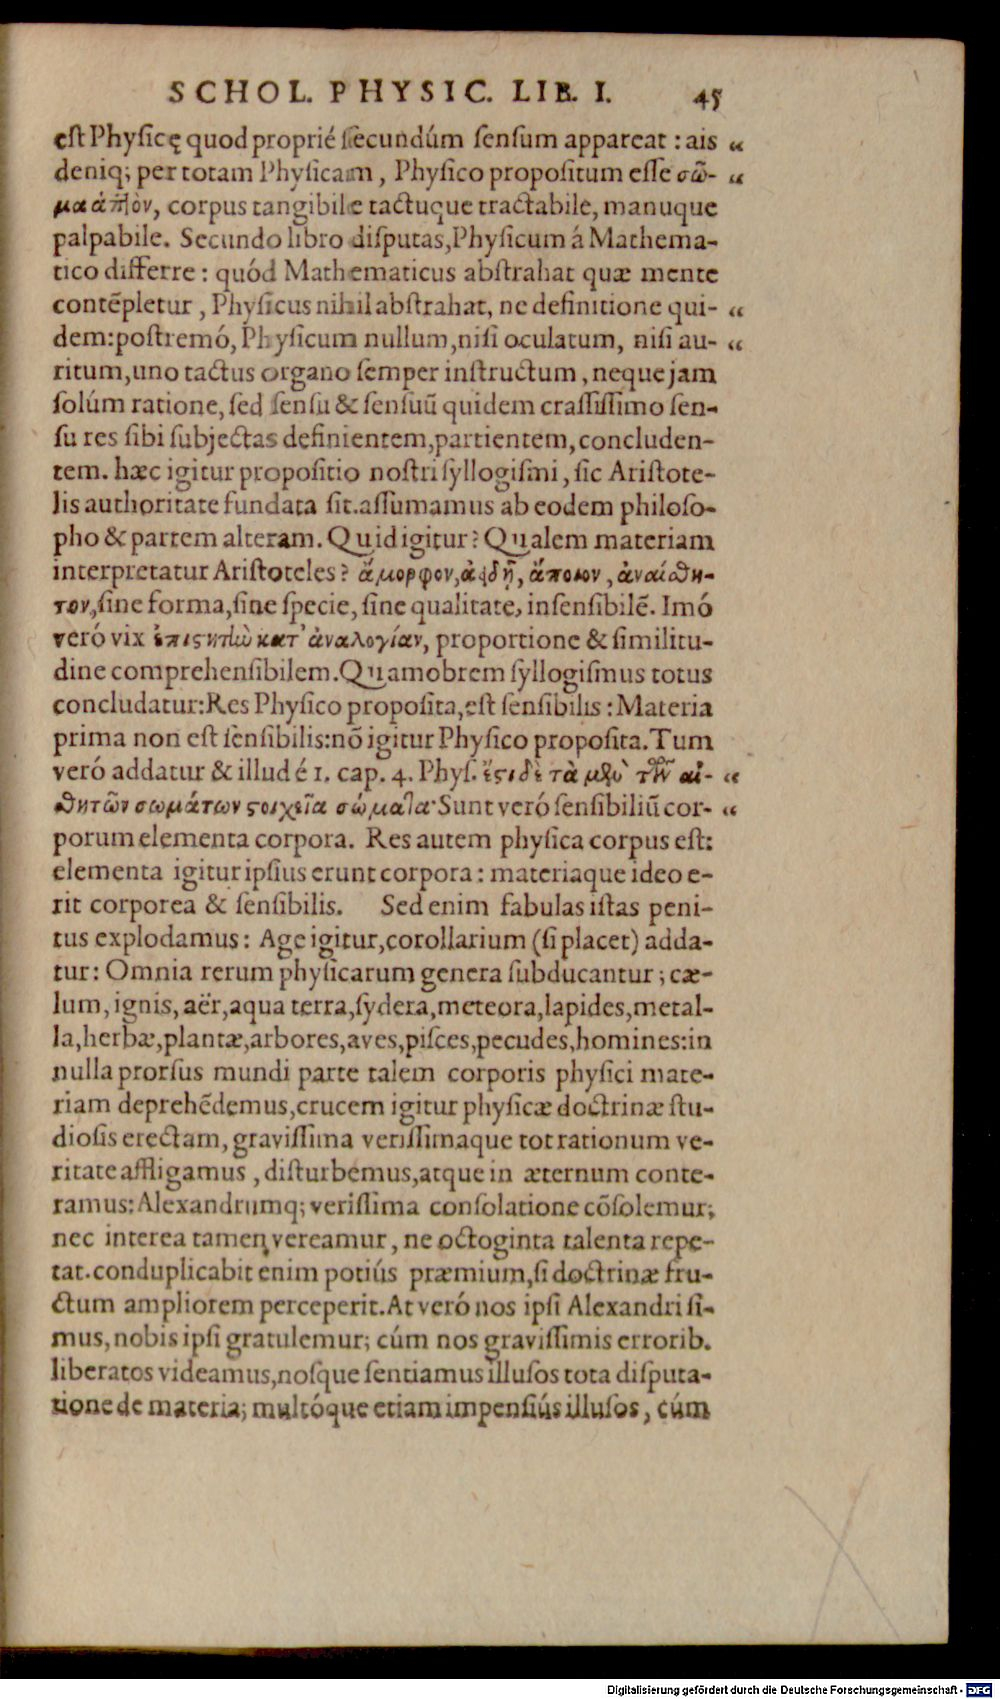 SCHOL. PHYSIC. LIB. I. 45
est Physicę quod proprié secundúm sensum appareat : ais “
deniq; per totam Physicam, Physico propositum esse σῶ- “
μα ἁπλὸν, corpus tangibile tactuque tractabile, manuque
palpabile. Secundo libro disputas, Physicum á Mathema-
tico differre : quód Mathematicus abstrahat quæ mente
contẽpletur, Physicus nihil abstrahat, ne definitione qui- “
dem: postremó, Physicum nullum, nisi oculatum, nisi au- “
ritum, uno tactus organo semper instructum, neque jam
solúm ratione, sed sensu & sensuũ quidem crassissimo sen-
su res sibi subjectas definientem, partientem, concluden-
tem. hæc igitur propositio nostri syllogismi, sic Aristote-
lis authoritate fundata sit. assumamus ab eodem philoso-
pho & partem alteram. Quid igitur? Qualem materiam
interpretatur Aristoteles? ἄμορφον, ἀειδῆ, ἄποιον, ἀναίσθη-
τον, sine forma, sine specie, sine qualitate, insensibilẽ. Imó
veró vix ἐπιστητὼ κατ᾽ ἀναλογίαν, proportione & similitu-
dine comprehensibilem. Quamobrem syllogismus totus
concludatur: Res Physico proposita, est sensibilis : Materia
prima non est sensibilis: nõ igitur Physico proposita. Tum
veró addatur & illud é 1. cap. 4. Phys. ἔστι δὲ τὰ μὲν τῶν αἰ- “
σθητῶν σωμάτων στοιχεῖα σώματα· Sunt veró sensibiliũ cor- “
porum elementa corpora. Res autem physica corpus est:
elementa igitur ipsius erunt corpora : materiaque ideo e-
rit corporea & sensibilis. Sed enim fabulas istas peni-
tus explodamus : Age igitur, corollarium (si placet) adda-
tur : Omnia rerum physicarum genera subducantur ; cæ-
lum, ignis, aër, aqua terra, sydera, meteora, lapides, metal-
la, herbæ, plantæ, arbores, aves, pisces, pecudes, homines: in
nulla prorsus mundi parte talem corporis physici mate-
riam deprehẽdemus, crucem igitur physicæ doctrinæ stu-
diosis erectam, gravissima verissimaque tot rationum ve-
ritate affligamus, disturbemus, atque in æternum conte-
ramus: Alexandrumq; verissima consolatione cõsolemur;
nec interea tamen vereamur, ne octoginta talenta repe-
tat. conduplicabit enim potiús præmium, si doctrinæ fru-
ctum ampliorem perceperit. At veró nos ipsi Alexandri si-
mus, nobis ipsi gratulemur; cúm nos gravissimis errorib.
liberatos videamus, nosque sentiamus illusos tota disputa-
tione de materia; multóque etiam impensiús illusos, cúm
Digitalisierung gefördert durch die Deutsche Forschungsgemeinschaft - DFG